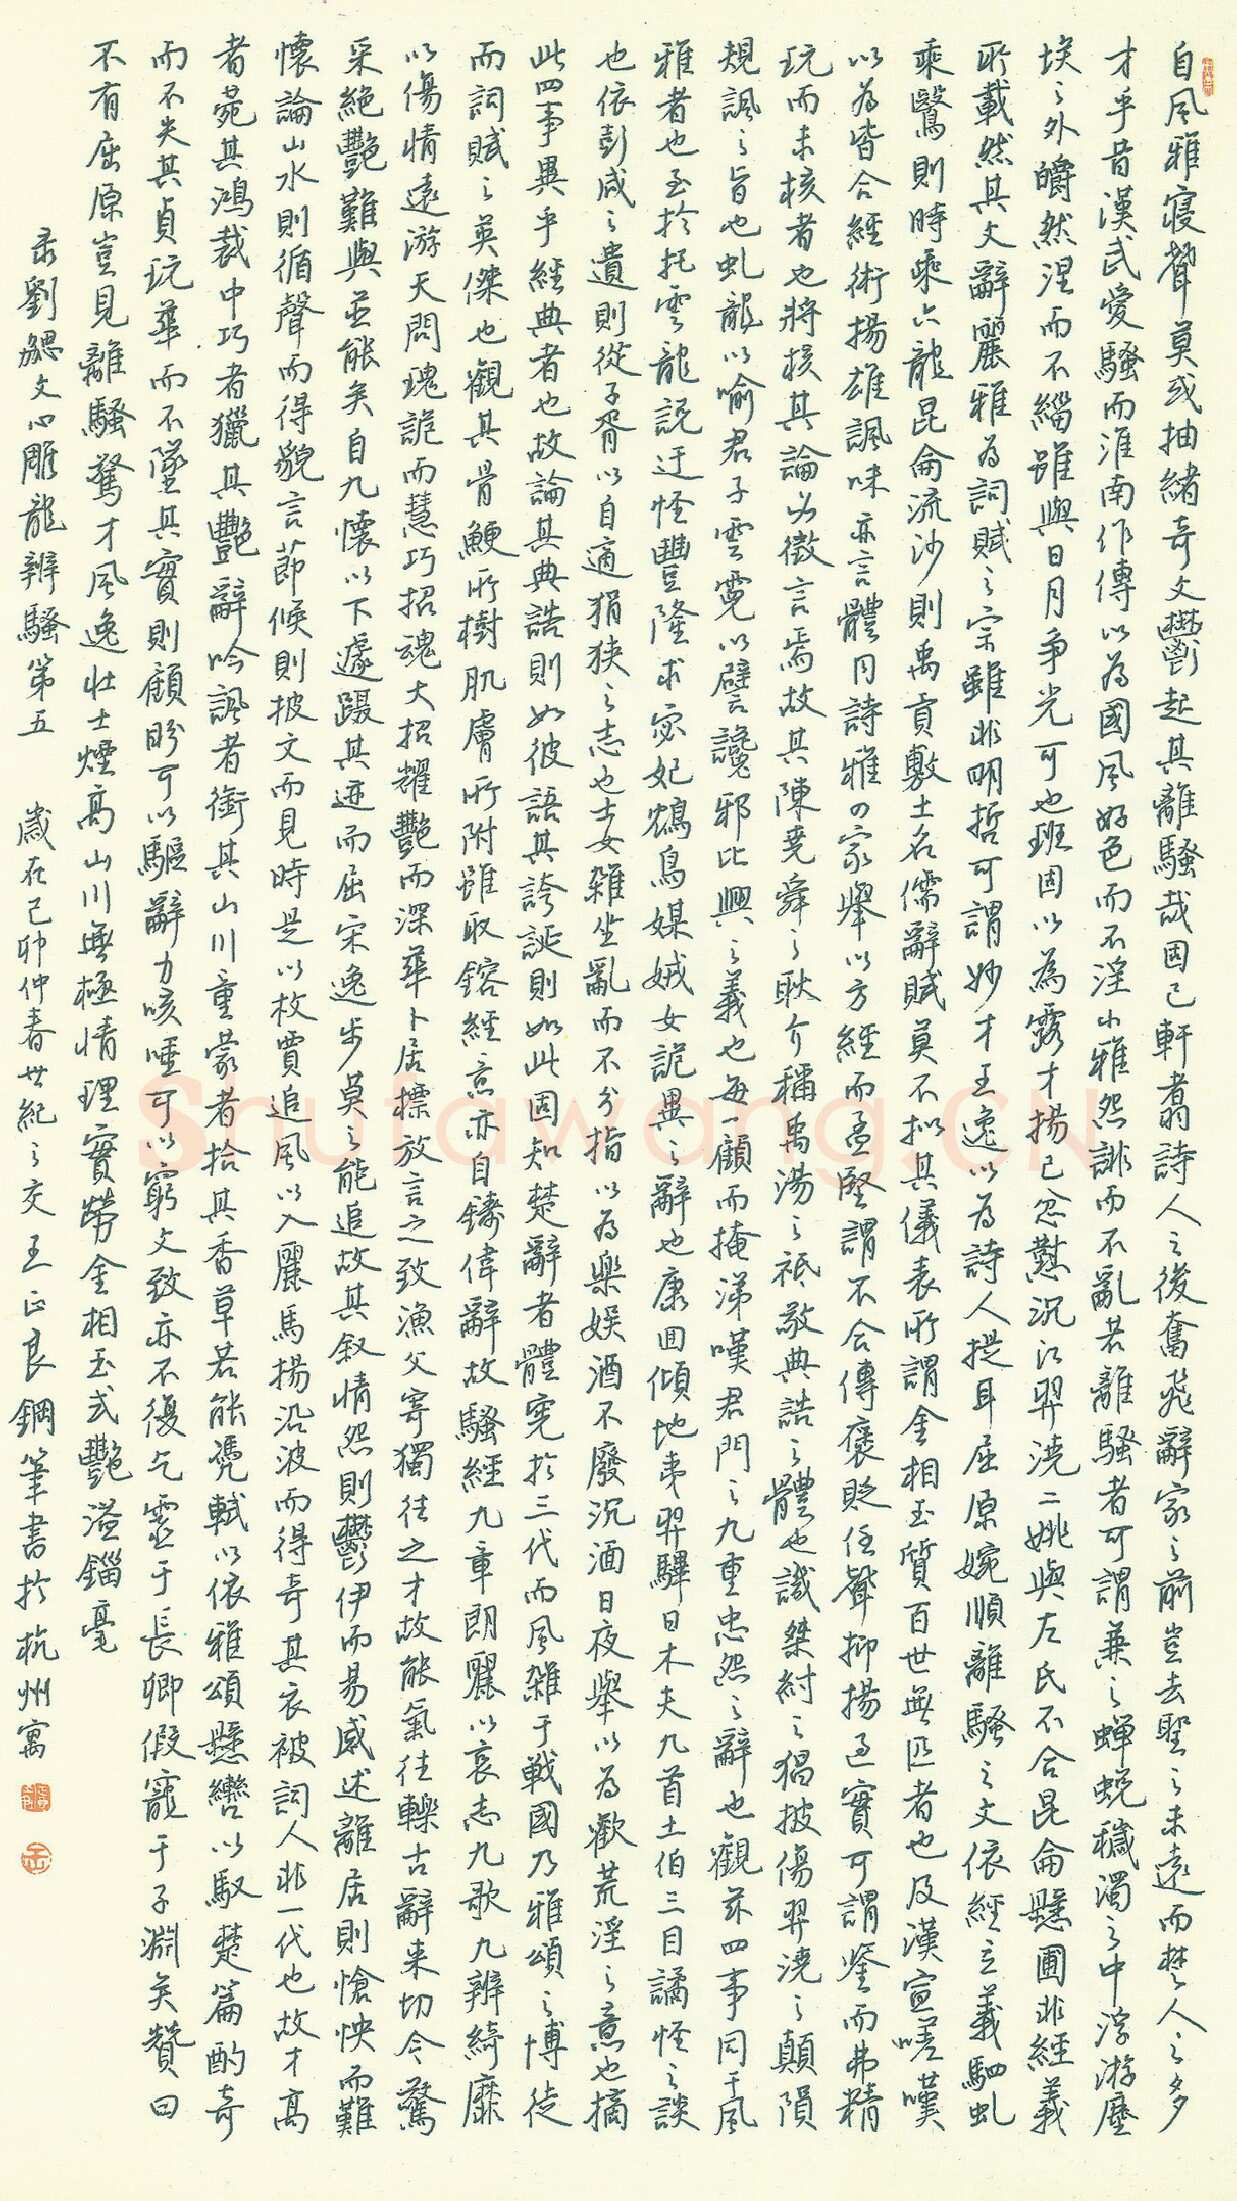 自風雅寢聲莫或抽緒奇文鬱起其離騷哉固已軒翥詩人之後奮飛辭家之前豈去聖之未遠而楚人之多
才乎昔漢武愛騷而淮南作傳以為國風好色而不淫小雅怨誹而不亂若離騷者可謂兼之蟬蛻穢濁之中浮游塵
埃之外皭然涅而不緇雖與日月爭光可也班固以為露才揚己忿懟沉江羿澆二姚與左氏不合昆侖懸圃非經義
所載然其文辭麗雅為詞賦之宗雖非明哲可謂妙才王逸以為詩人提耳屈原婉順離騷之文依經立義駟虬
乘鷖則時乘六龍昆侖流沙則禹貢敷土名儒辭賦莫不擬其儀表所謂金相玉質百世無匹者也及漢宣嗟嘆
以為皆合經術揚雄諷味亦言體同詩雅四家舉以方經而孟堅謂不合傳褒貶任聲抑揚過實可謂鑒而弗精
玩而未核者也將核其論必徵言焉故其陳堯舜之耿介稱禹湯之祗敬典誥之體也譏桀紂之猖披傷羿澆之顛隕
規諷之旨也虬龍以喻君子雲霓以譬讒邪比興之義也每一顧而掩涕嘆君門之九重忠怨之辭也觀茲四事同于風
雅者也至於托雲龍說迂怪豐隆求宓妃鴆鳥媒娀女詭異之辭也康回傾地夷羿彈日木夫九首土伯三目譎怪之談
也依彭咸之遺則從子胥以自適狷狹之志也士女雜坐亂而不分指以為樂娛酒不廢沉湎日夜舉以為歡荒淫之意也摘
此四事異乎經典者也故論其典誥則如彼語其誇誕則如此固知楚辭者體憲於三代而風雜于戰國乃雅頌之博徒
而詞賦之英傑也觀其骨鯁所樹肌膚所附雖取鎔經意亦自鑄偉辭故騷經九章朗麗以哀志九歌九辨綺靡
以傷情遠游天問瑰詭而慧巧招魂大招耀艷而深華卜居標放言之致漁父寄獨往之才故能氣往轢古辭來切今驚
采絕艷難與並能矣自九懷以下遽躡其跡而屈宋逸步莫之能追故其敘情怨則鬱伊而易感述離居則愴怏而難
懷論山水則循聲而得貌言節候則披文而見時是以枚賈追風以入麗馬揚沿波而得奇其衣被詞人非一代也故才高
者菀其鴻裁中巧者獵其艷辭吟諷者銜其山川童蒙者拾其香草若能憑軾以依雅頌懸轡以馭楚篇酌奇
而不失其貞玩華而不墜其實則顧盼可以驅辭力咳唾可以窮文致亦不復乞靈于長卿假寵于子淵矣贊曰
不有屈原豈見離騷驚才風逸壯士煙高山川無極情理實勞金相玉式艷溢錙毫
录劉勰文心雕龍辨騷第五 歲在己卯仲春世紀之交 王正良鋼筆書於杭州寓
Shufawang.CN